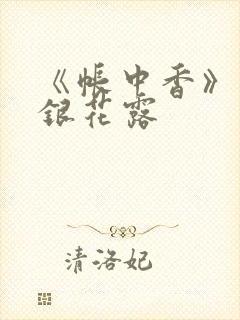 《帐中香》
银花露
清洛妃